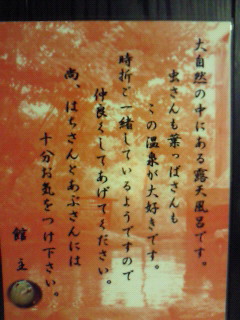 大自然の中にある露天風呂です。
虫さんも葉っぱさんも
この温泉が大好きです。
時折ご一緒しているようですので
仲良くしてあげてください。
尚、はちさんとあぶさんには
十分お気をつけ下さい。
館主